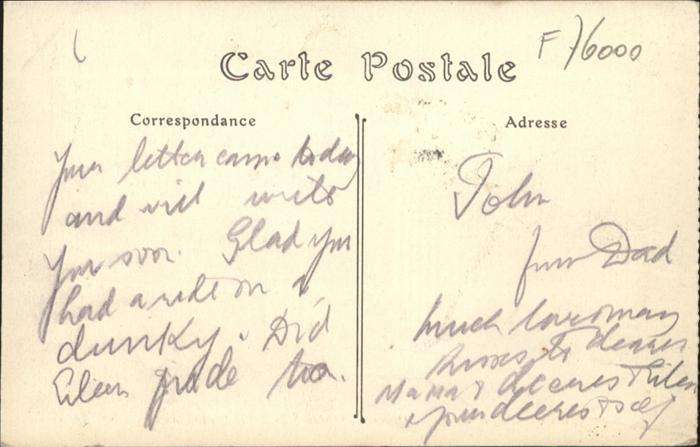 Carte Postale
F 76000
Correspondance
Your letter came today
and will write
you soon. Glad you
had a ride on a
dunky. Did
Eileen
too.
Adresse
John
from Dad
much love many
kisses to dearest
Mama &